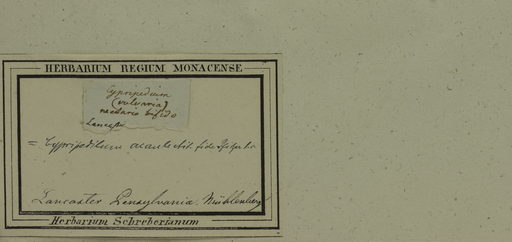 HERBARIUM REGIUM MONACENSE
Cypripedium
(vulvaria)
nectario bifido
Lancaster
= Cypripedium acaule Ait. fide
Lancaster Pensylvania. Mühlenberg
Herbarium Schreberianum